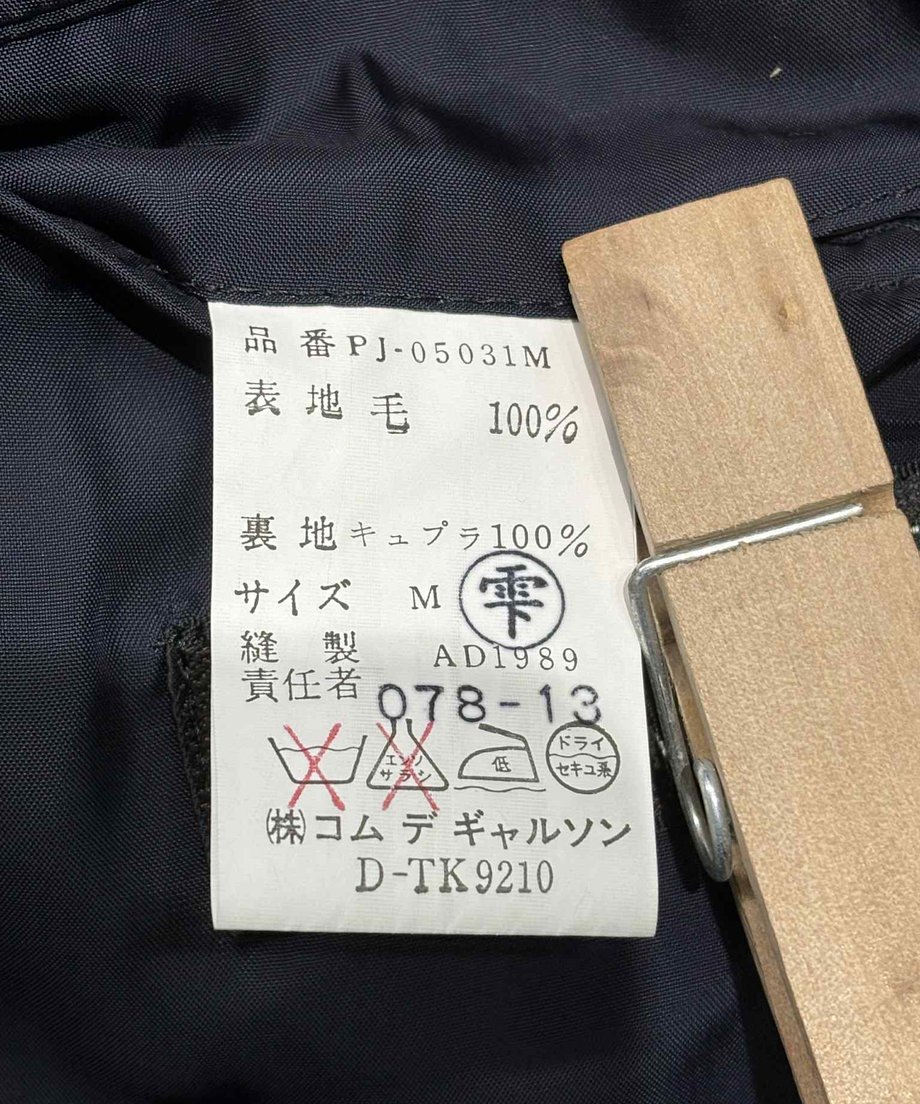 品番 PJ-05031M
表地 毛 100%
裏地 キュプラ100%
サイズ M 雫
縫製 AD1989
責任者 078-13
エンソサラシ 低 ドライ セキユ系
㈱コム デ ギャルソン
D-TK9210